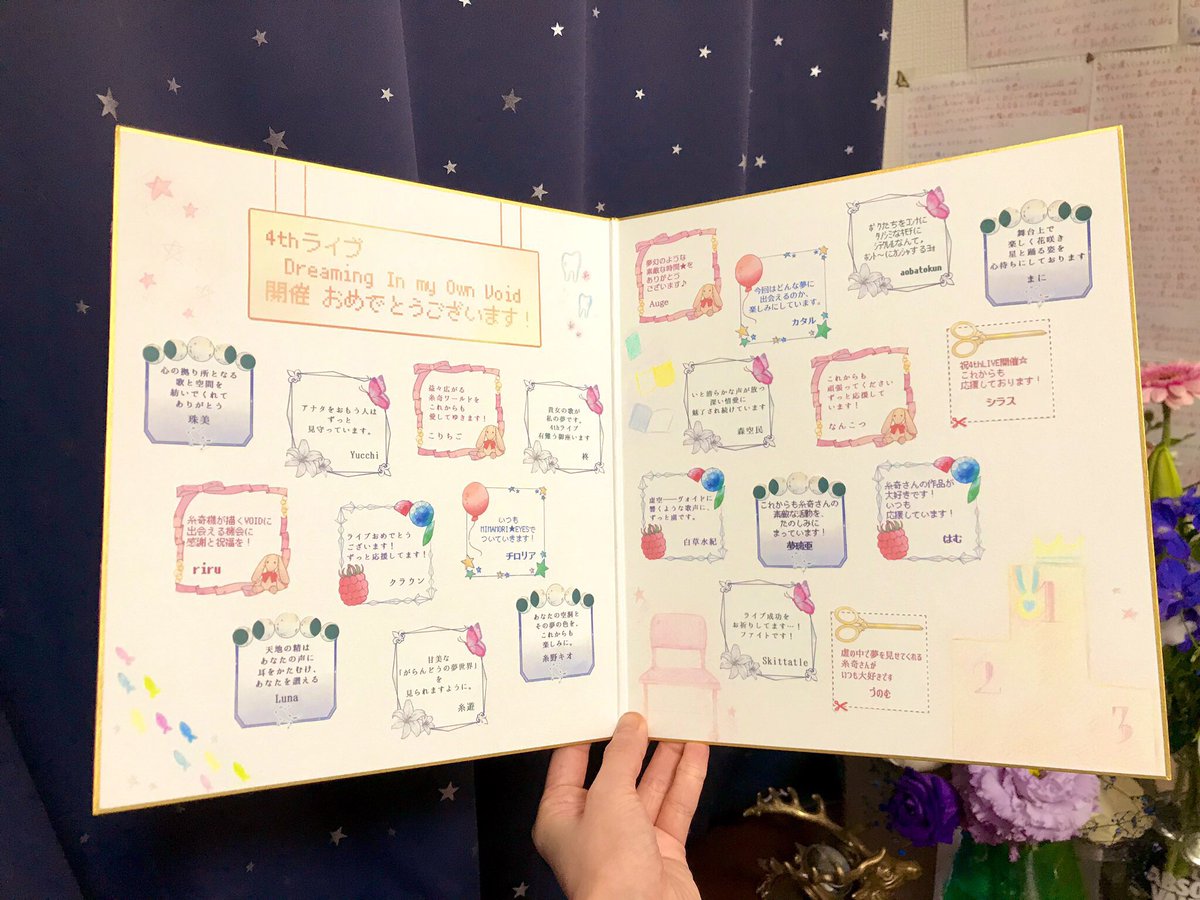 4thライブ
Dreaming In my Own Void
開催 おめでとうございます!
心の拠り所となる
歌と空間を
紡いでくれて
ありがとう
珠美
アナタをおもう人は
ずっと
見守っています。
Yucchi
益々広がる
糸奇ワールドを
これからも
愛してゆきます!
こりちご
貴女の歌が
私の夢です。
4thライブ
有難う御座います
柊
糸奇織が描くVOIDに
出会える機会に
感謝と祝福を!
riru
ライブおめでとう
ございます!
ずっと応援してます!
クラウン
いつも
MIMAMORI★EYESで
ついていきます!
チロリア
天地の精は
あなたの声に
耳をかたむけ、
あなたを讃える
Luna
甘美な
「がらんどうの夢世界」
を
見られますように。
糸遊
あなたの空洞と
その夢の色を、
これからも
楽しみに。
糸野キオ
夢幻のような
素敵な時間★を
ありがとう
ございます♪
Auge
今回はどんな夢に
出会えるのか、
楽しみにしています。
カタル
ボクたちをコンナに
タノシミなキモチに
シテクルルなんて。
ホント〜にカンシャするヨォ
aobatokun
舞台上で
楽しく花咲き
星と踊る姿を
心待ちにしております
まに
いと清らかな声が放つ
深い情愛に
魅了され続けています
森空民
これからも
頑張ってください
ずっと応援して
います!
なんこつ
祝4thLIVE開催☆
これからも
応援しております!
シラス
虚空――ヴォイドに
響くような歌声に、
ずっと虜です。
白草水紀
これからも糸奇さんの
素敵な活動を、
たのしみに
まっています!
夢璃亜
糸奇さんの作品が
大好きです!
いつも
応援しています!
はむ
ライブ成功を
お祈りしてます…!
ファイトです!
Skittatle
虚の中で夢を見せてくれる
糸奇さんが
いつも大好きです
づのむ
1
2
3